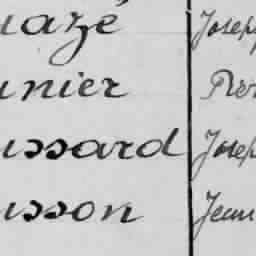 uazé Joseph
unier Pier
ussard Josep
usson Jean